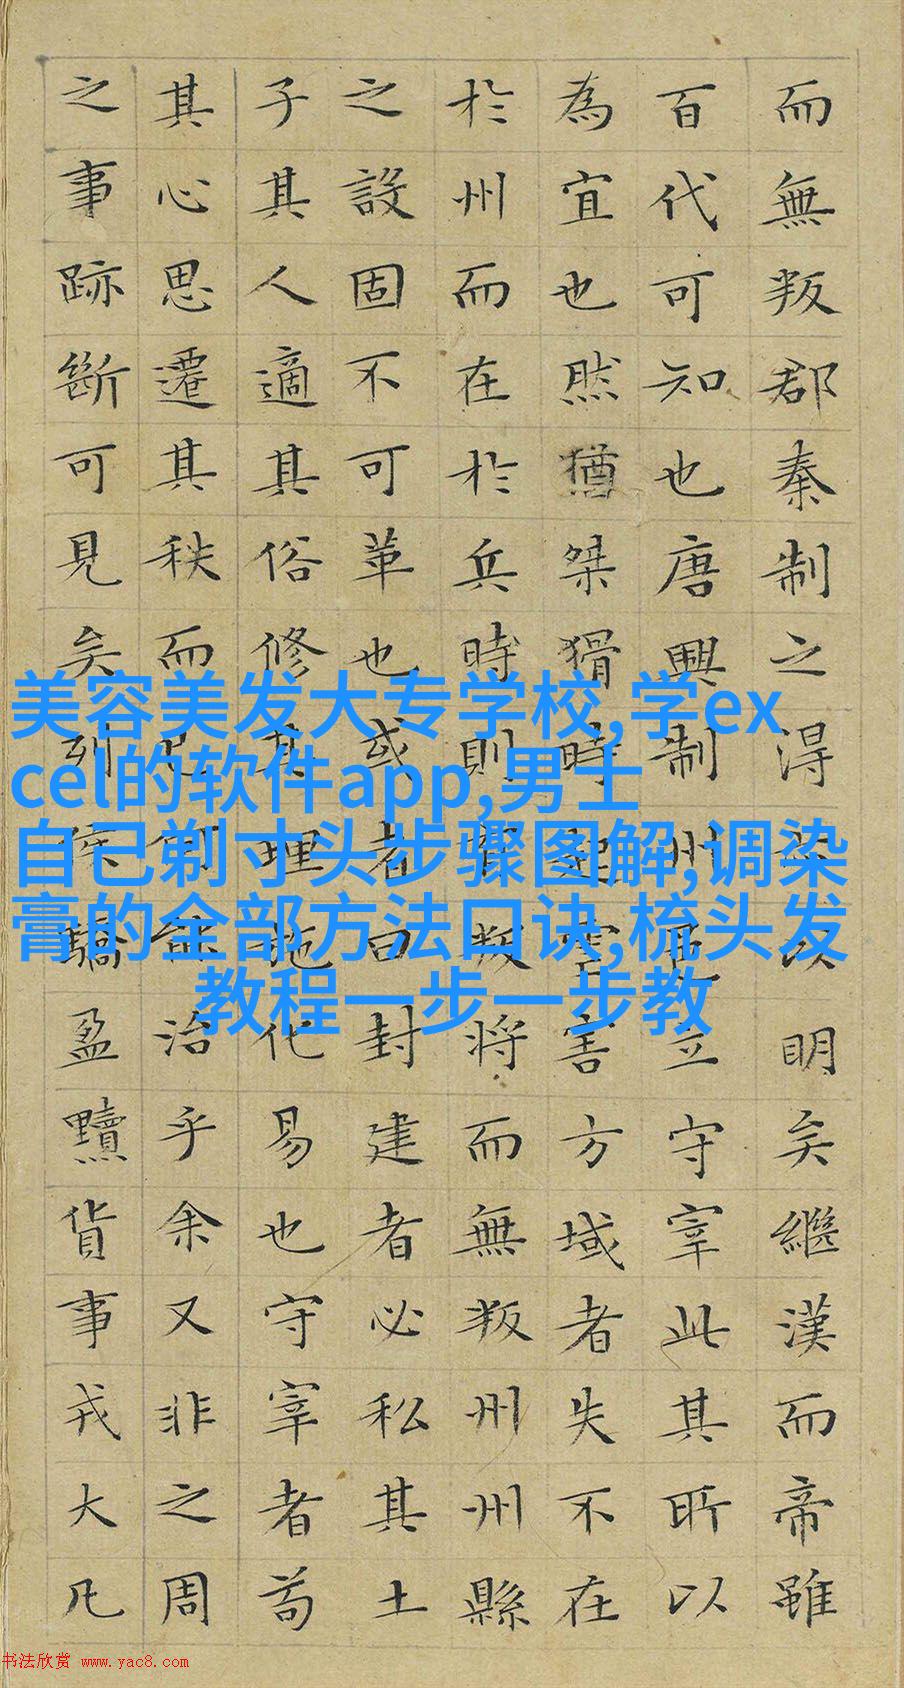 而無叛郡秦制之得以明矣繼漢而帝雖
百代可知也唐興制州邑立守宰此其所以
為宜也然猶桀猾時起虐害方域者失不在
於州而在於兵時則有叛將而無叛州州縣
之設固不可革也或者曰封建者必私其土
子其人適其俗修其理施化易也守宰者苟
其心思遷其秩而已何能治乎余又非之周
之事跡斷可見矣列侯驕盈黷貨事戎大凡
美容美发大专学校,学ex
cel的软件app,男士
自己剃寸头步骤图解,调染
膏的全部方法口诀,梳头发
教程一步一步教
书法欣赏 www.yac8.com